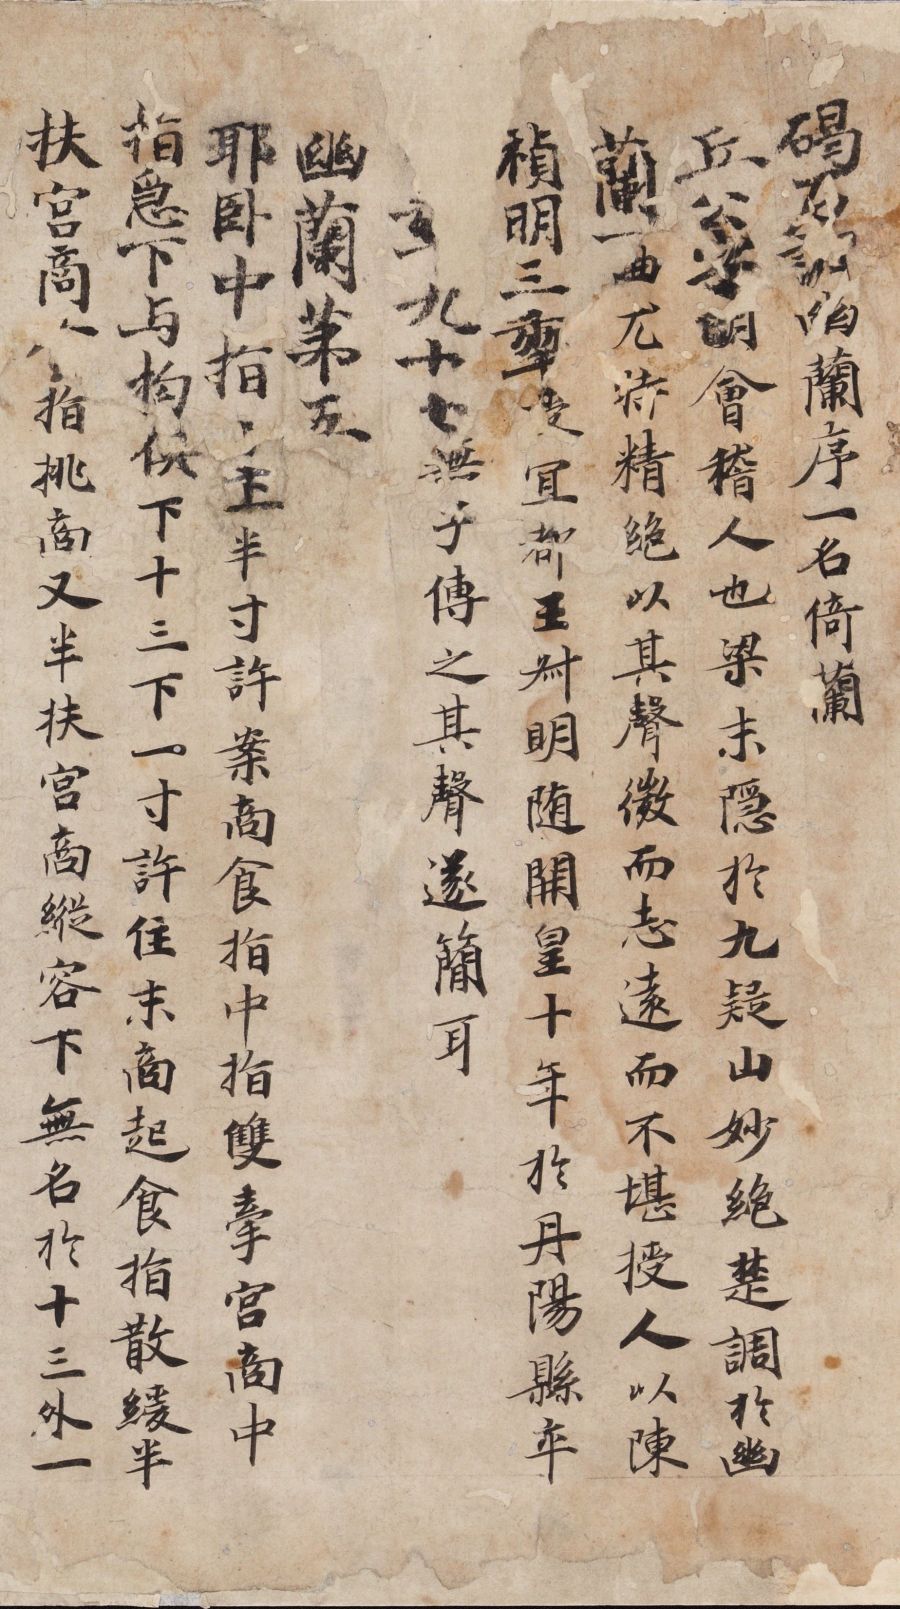 碣石調幽蘭序一名倚蘭
丘公字明會稽人也梁末隱於九疑山妙絶楚調於幽
蘭一曲尤特精絶以其聲微而志遠而不堪授人以陳
禎明三年授宜都王叔明随開皇十年於丹陽縣卒
九十七無子傳之其聲遂簡耳
幽蘭第五
耶卧中指半寸許案商食指中指雙牽宮商中
指急下与拘俱下十三下一寸許住末商起食指散緩半
扶宮商食指挑商又半扶宮商縱容下無名於十三外一